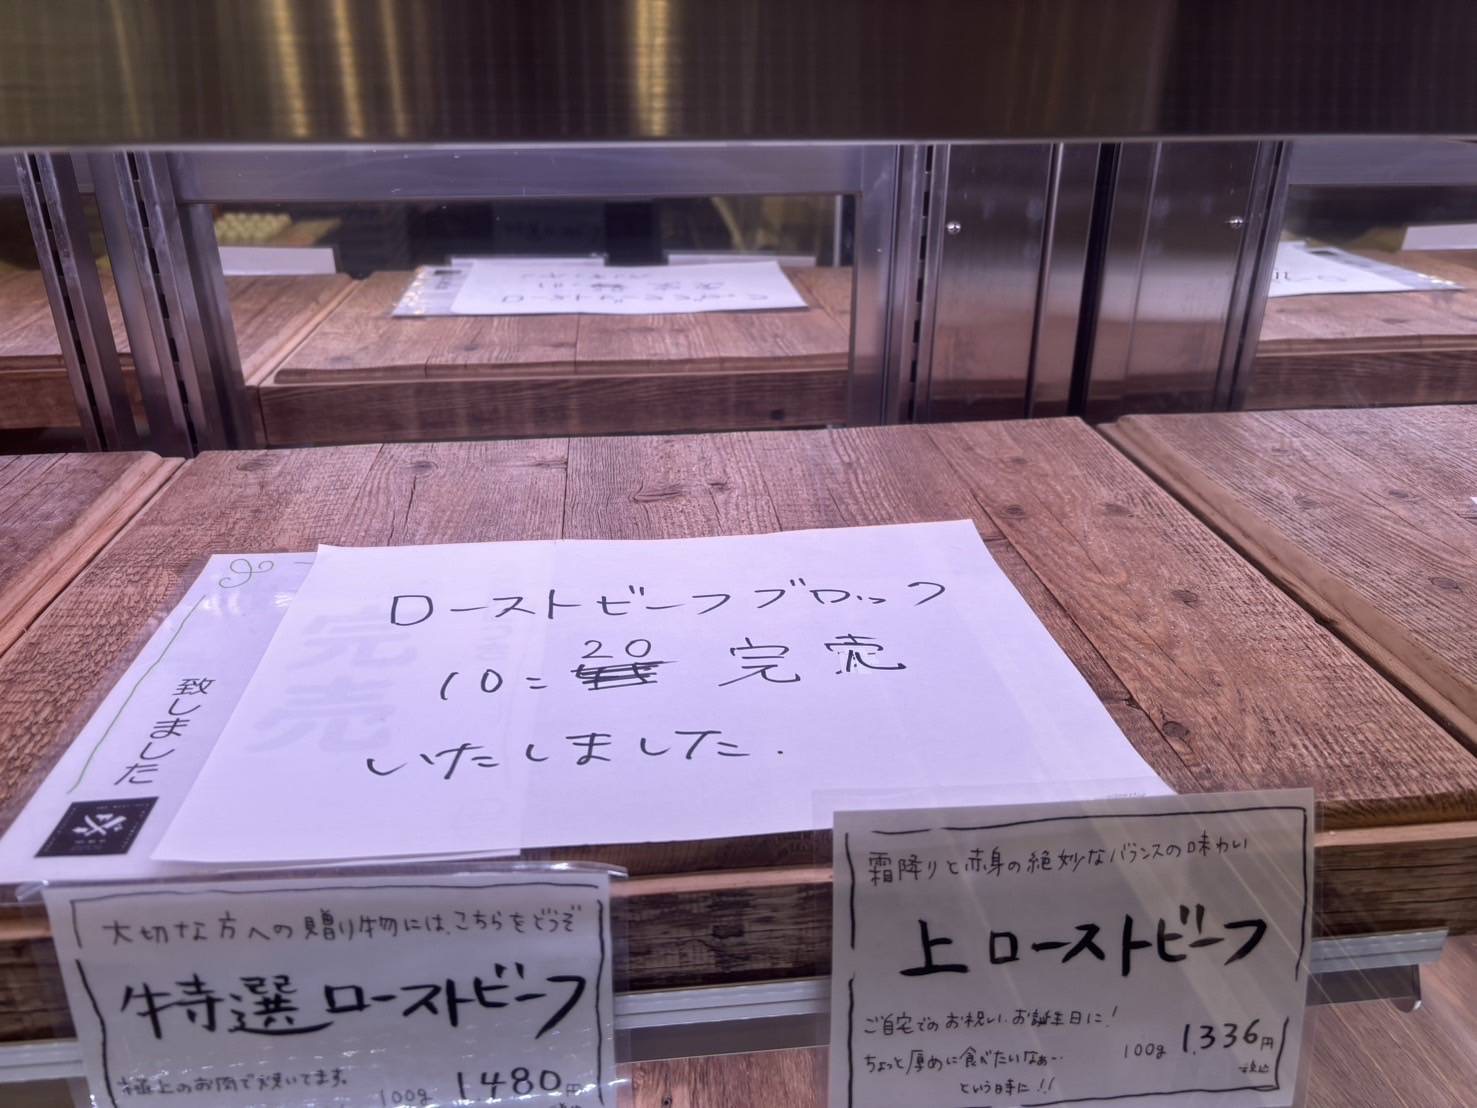 ローストビーフブロック
10=20 完売
いたしました.
完売
致しました
大切な方への贈り物には、こちらをどうぞ
特選ローストビーフ
極上のお肉で焼いてます。
100g 1,480円
霜降りと赤身の絶妙なバランスの味わい
上ローストビーフ
ご自宅でのお祝い、お誕生日に!
ちょっと厚めに食べたいなぁ…
という時に!!
100g 1,336円
税込